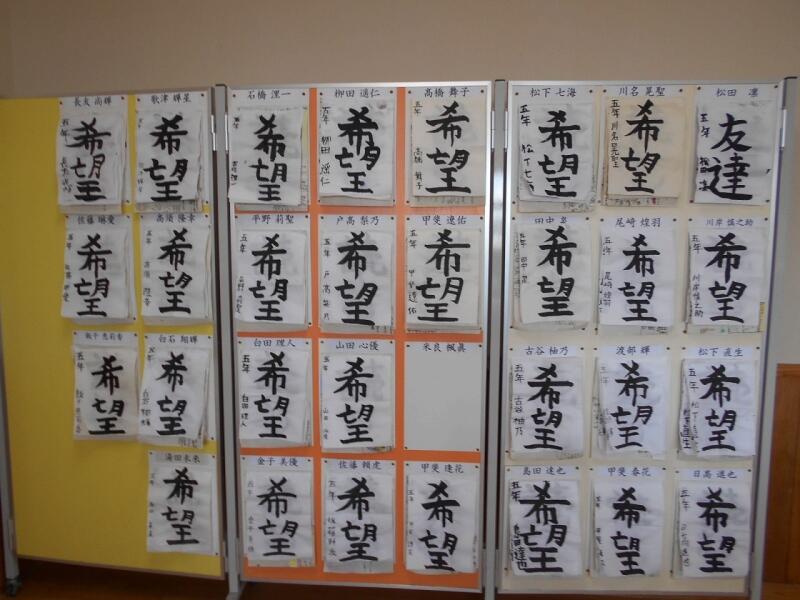 長友 尚輝
希望
五年
歌津 輝星
希望
佐藤 琳愛
希望
五年
高須 隆幸
希望
五年
希望
五年
白石 翔輝
希望
五年
湯田 未来
希望
石橋 浬一
希望
柳田 遥仁
希望
五年 柳田 遥仁
高橋 舞子
希望
五年 高橋 舞子
平野 莉聖
希望
五年
戸高 梨乃
希望
五年 戸高 梨乃
甲斐 逢佑
希望
五年 甲斐 逢佑
白田 理人
希望
五年 白田 理人
山田 心優
希望
五年 山田 心優
米良 楓眞
金子 美優
希望
佐藤 頼虎
希望
五年
甲斐 逢花
希望
五年
松下 七海
希望
五年 松下 七海
川名 晃聖
希望
五年 川名 晃聖
松田 凛
友達
五年 松田 凛
希望
五年
尾崎 煌羽
希望
五年 尾崎 煌羽
川岸 慎之助
希望
五年 川岸 慎之助
古谷 柚乃
希望
五年 古谷 柚乃
渡部 輝
希望
五年
松下 直生
希望
五年 松下 直生
島田 達也
希望
五年 島田 達也
甲斐 春花
希望
五年
日高 遥也
希望
五年